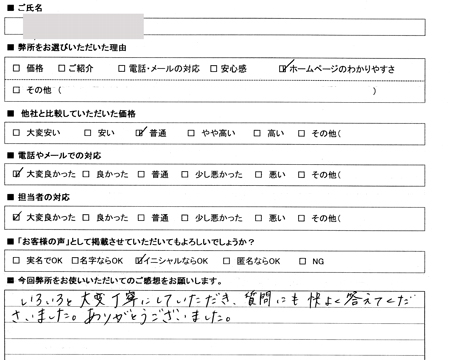 ■ ご氏名
■ 弊所をお選びいただいた理由
□ 価格 □ ご紹介 □ 電話・メールの対応 □ 安心感 ☑ ホームページのわかりやすさ
□ その他（ ）
■ 他社と比較していただいた価格
□ 大変安い □ 安い ☑ 普通 □ やや高い □ 高い □ その他（
■ 電話やメールでの対応
☑ 大変良かった □ 良かった □ 普通 □ 少し悪かった □ 悪い □ その他（
■ 担当者の対応
☑ 大変良かった □ 良かった □ 普通 □ 少し悪かった □ 悪い □ その他（
■ 「お客様の声」として掲載させていただいてもよろしいでしょうか？
□ 実名でOK □ 名字ならOK ☑ イニシャルならOK □ 匿名ならOK □ NG
■ 今回弊所をお使いいただいてのご感想をお願いします。
いろいろと大変丁寧にしていただき、質問にも快よく答えてくだ
さいました。ありがとうございました。